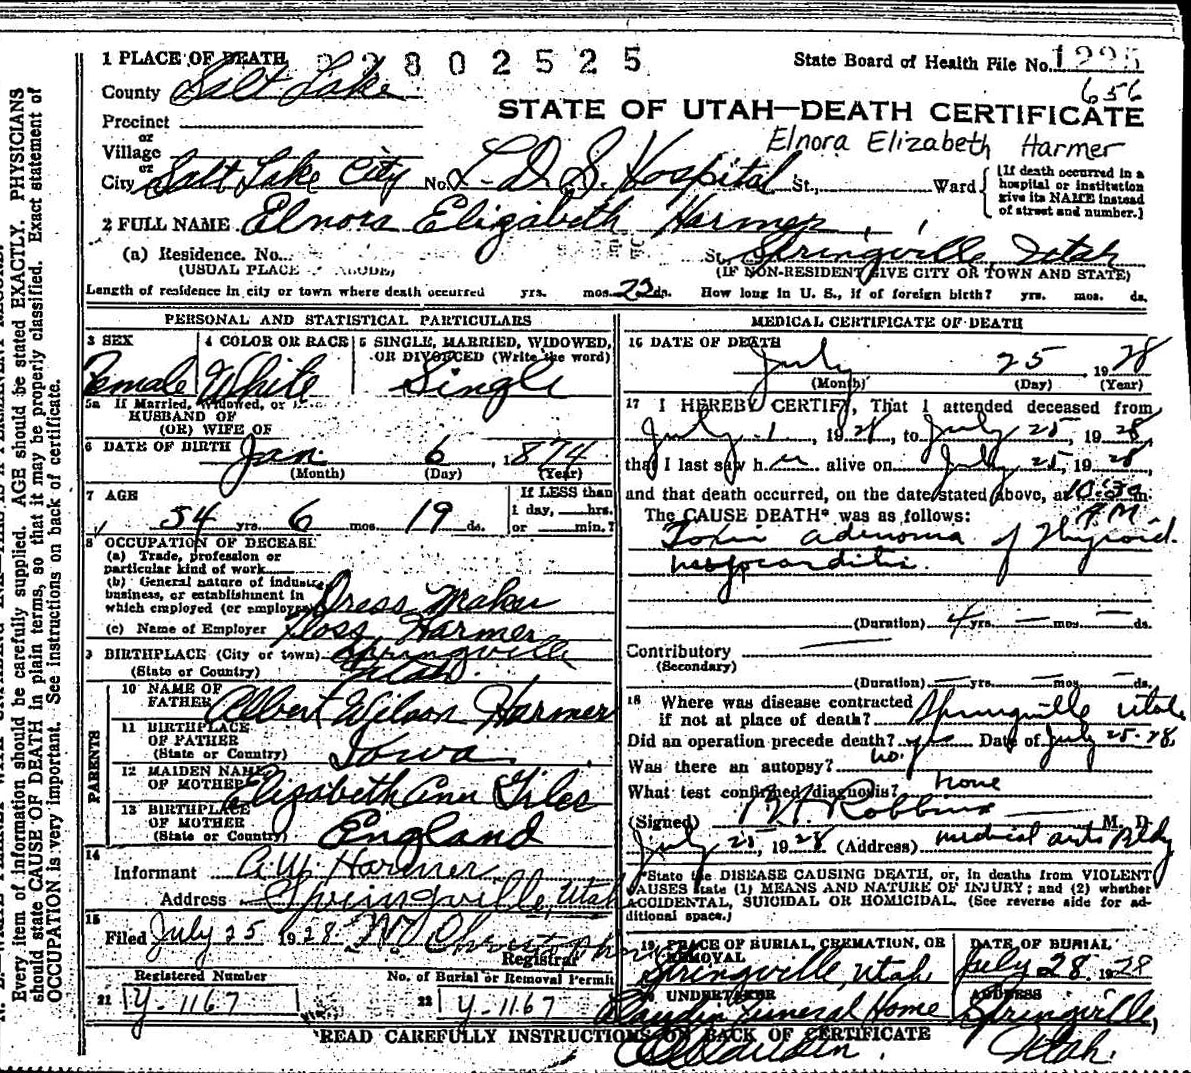 1 PLACE OF DEATH 2802525 State Board of Health File No. 1225
County Salt Lake 656
STATE OF UTAH—DEATH CERTIFICATE
Precinct
or
Village
or
Elnora Elizabeth Harmer
City Salt Lake City No. L.D.S. Hospital St., Ward
(If death occurred in a hospital or institution give its NAME instead of street and number.)
2 FULL NAME Elnora Elizabeth Harmer
(a) Residence. No. St. Springville, Utah
(USUAL PLACE ABODE) (IF NON-RESIDENT GIVE CITY OR TOWN AND STATE)
Length of residence in city or town where death occurred yrs. mos. 23 ds. How long in U. S., if of foreign birth? yrs. mos. ds.
PERSONAL AND STATISTICAL PARTICULARS
3 SEX
Female
4 COLOR OR RACE
White
5 SINGLE, MARRIED, WIDOWED, OR DIVORCED (Write the word)
Single
5a If Married, Widowed, or
HUSBAND OF
(OR) WIFE OF
6 DATE OF BIRTH Jan 6, 1874
(Month) (Day) (Year)
7 AGE
54 yrs. 6 mos. 19 ds.
If LESS than
1 day, hrs.
or min.?
8 OCCUPATION OF DECEASED
(a) Trade, profession or
particular kind of work
(b) General nature of industry
business, or establishment in
which employed (or employer) Dress Maker
(c) Name of Employer Floss Harmer
9 BIRTHPLACE (City or town) Springville
(State or Country) Utah.
PARENTS
10 NAME OF
FATHER Albert Wilson Harmer
11 BIRTHPLACE
OF FATHER
(State or Country) Iowa
12 MAIDEN NAME
OF MOTHER Elizabeth Ann Giles
13 BIRTHPLACE
OF MOTHER
(State or Country) England
14
Informant A. W. Harmer
Address Springville, Utah
15
Filed July 25 1928
Registrar
Registered Number No. of Burial or Removal Permit
21 Y-1167 22 Y-1167
MEDICAL CERTIFICATE OF DEATH
16 DATE OF DEATH
July 25, 1928
(Month) (Day) (Year)
17 I HEREBY CERTIFY, That I attended deceased from
July 1, 1928, to July 25, 1928,
that I last saw her alive on July 25, 1928,
and that death occurred, on the date stated above, at 10:30 m.
P.M.
The CAUSE DEATH* was as follows:
Toxic adenoma of Thyroid.
myocarditis.
(Duration) 4 yrs. — mos. — ds.
Contributory
(Secondary)
(Duration) — yrs. — mos. — ds.
18 Where was disease contracted
if not at place of death? Springville Utah
Did an operation precede death? yes Date of July 25-28
Was there an autopsy? no.
What test confirmed diagnosis? none
(Signed) Robbins M. D.
July 25, 1928 (Address) medical arts Bldg
*State the DISEASE CAUSING DEATH, or, in deaths from VIOLENT
CAUSES state (1) MEANS AND NATURE OF INJURY; and (2) whether
ACCIDENTAL, SUICIDAL OR HOMICIDAL. (See reverse side for ad-
ditional space.)
19 PLACE OF BURIAL, CREMATION, OR
REMOVAL
Springville, Utah
DATE OF BURIAL
July 28 1928
20 UNDERTAKER
Funeral Home
ADDRESS
Springville,
Utah.
READ CAREFULLY INSTRUCTIONS ON BACK OF CERTIFICATE
Every item of information should be carefully supplied. AGE should be stated EXACTLY. PHYSICIANS
should state CAUSE OF DEATH in plain terms, so that it may be properly classified. Exact statement of
OCCUPATION is very important. See instructions on back of certificate.